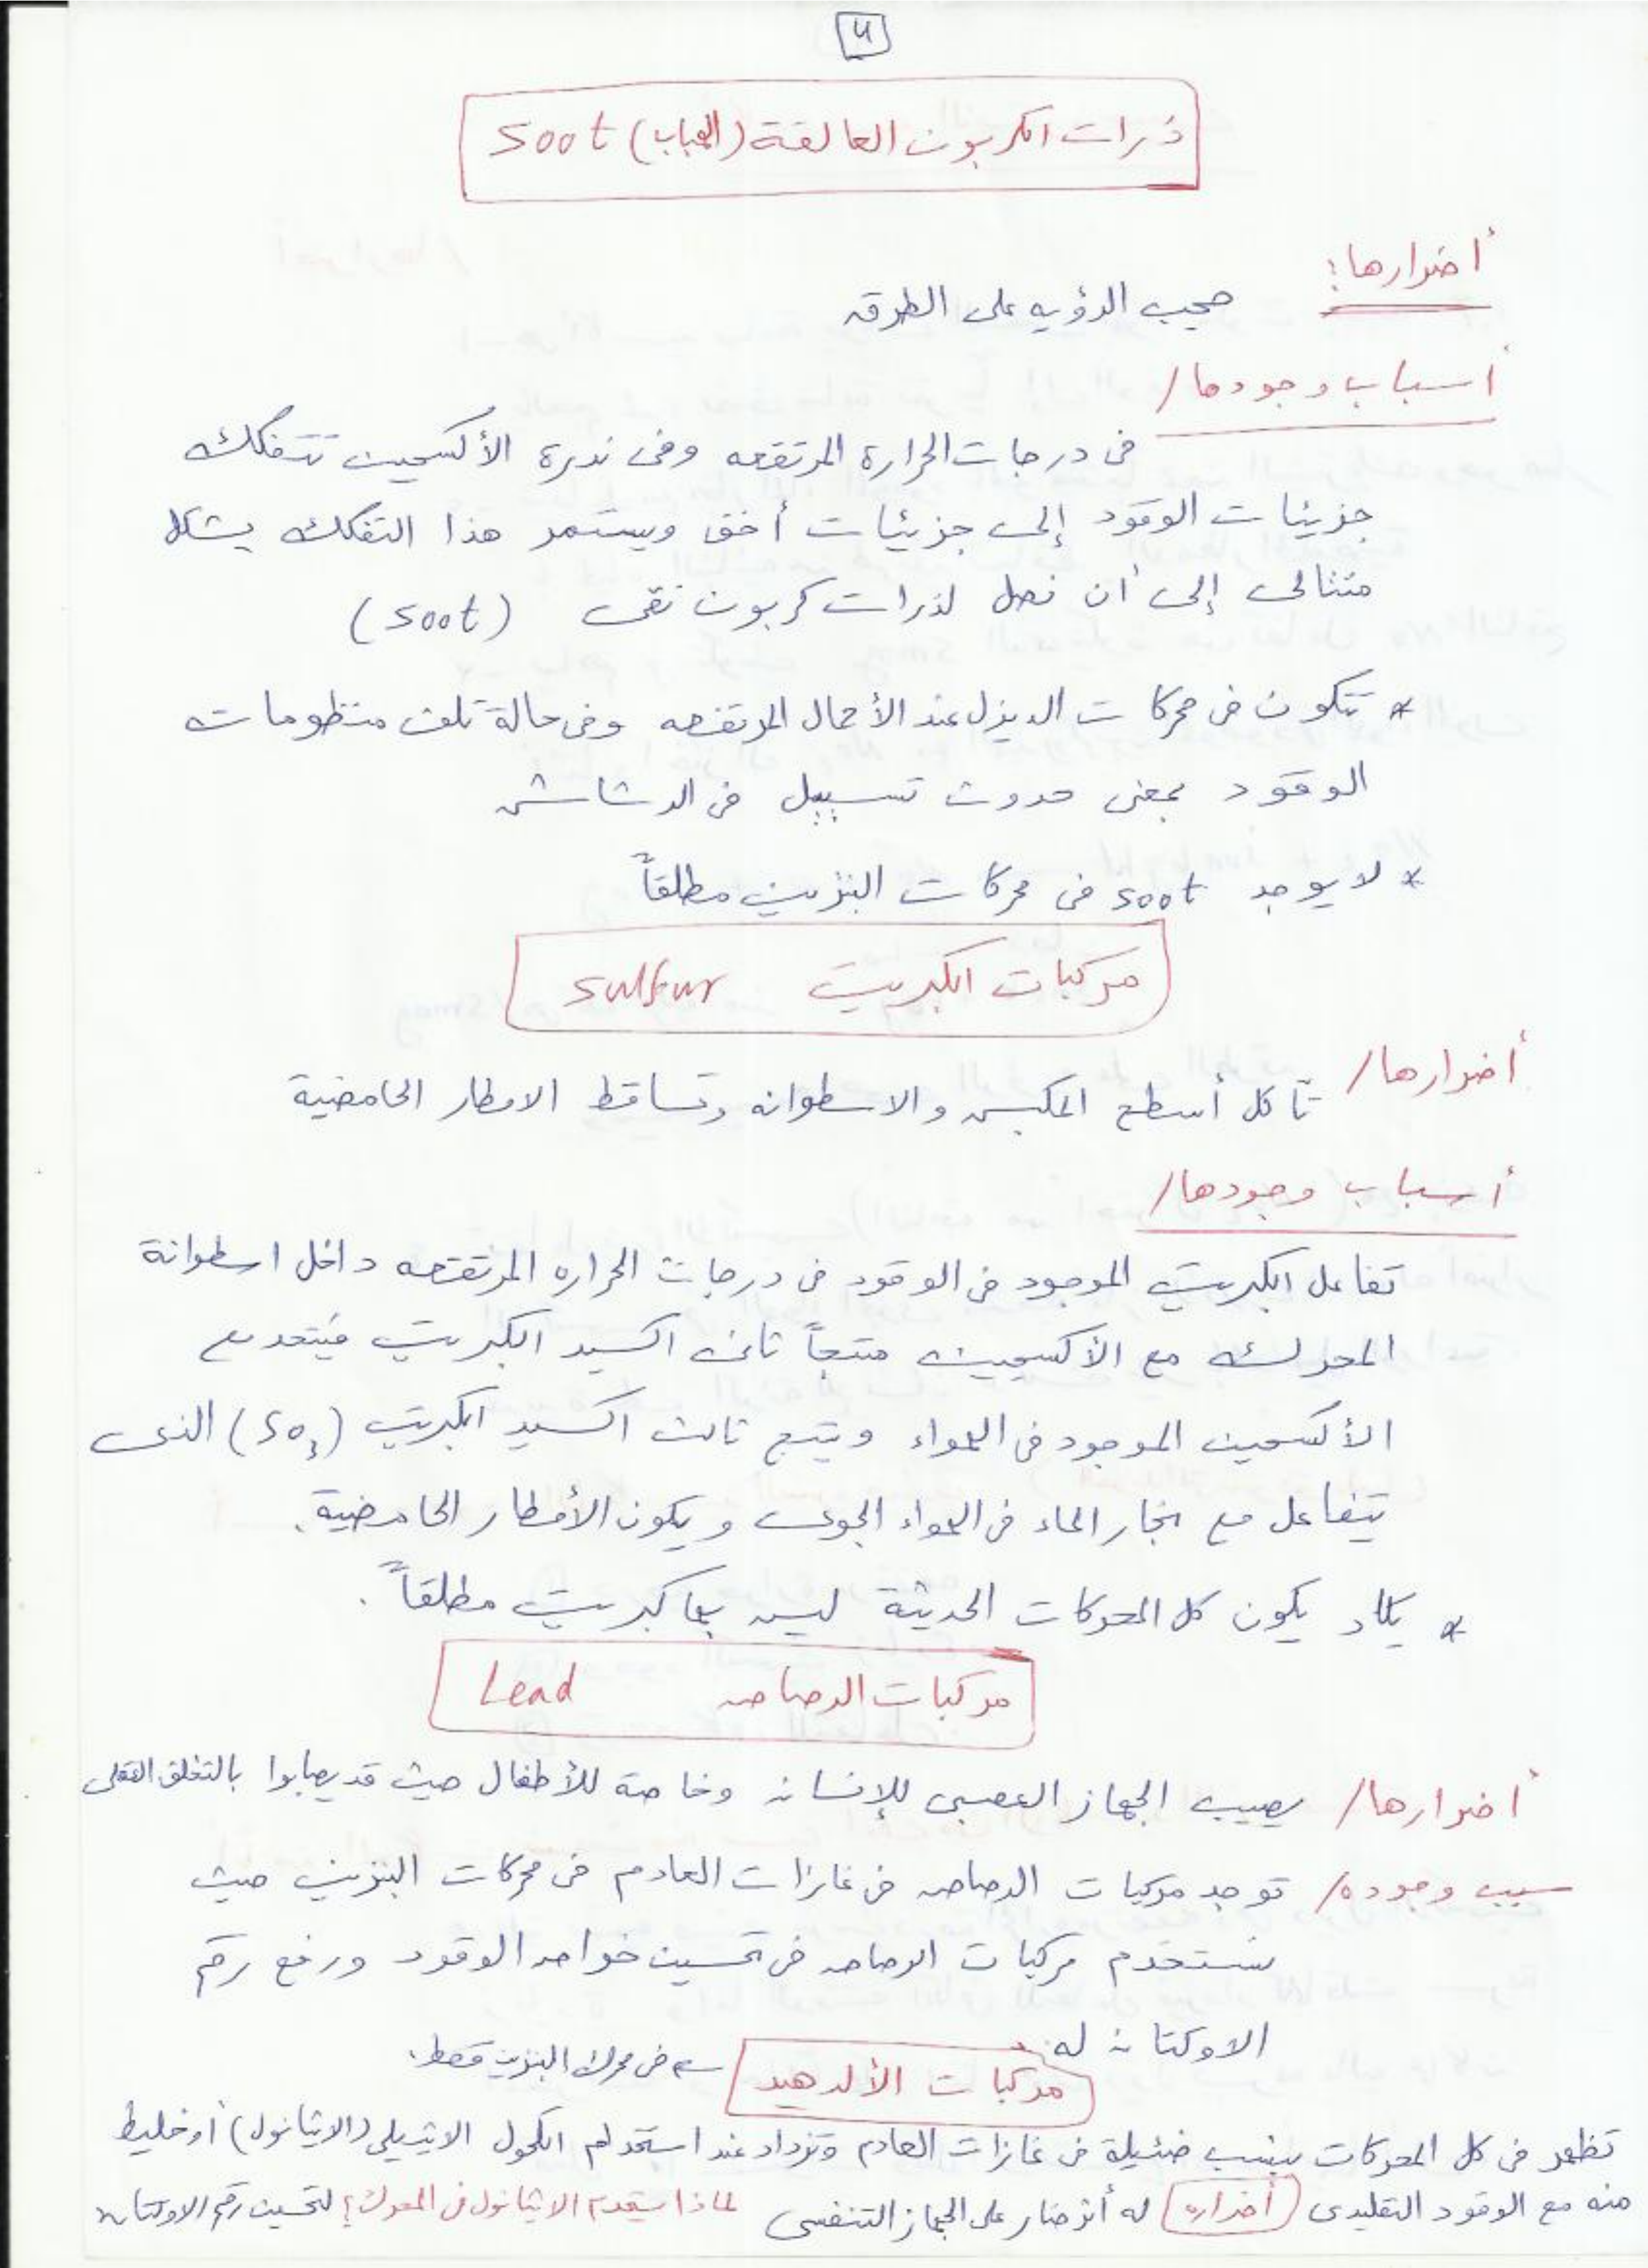 ٤
ذرات الكربون العالقة (الهباب) soot
أضرارها:
حجب الرؤيه على الطرق
أسباب وجودها/
فى درجات الحرارة المرتفعه وفى ندرة الأكسجين تتفكك
جزيئات الوقود إلى جزيئات أخف ويستمر هذا التفكك بشكل
متتالى إلى أن نصل لذرات كربون نقى (soot)
* تتكون فى محركات الديزل عند الأحمال المرتفعه وفى حالة تلف منظومات
الوقود بمعنى حدوث تسييل فى الرشاش
* لا يوجد soot فى محركات البنزين مطلقاً
مركبات الكبريت sulfur
أضرارها/ تأكل أسطح المكبس والاسطوانه وتساقط الامطار الحامضية
أسباب وجودها/
تفاعل الكبريت الموجود فى الوقود فى درجات الحراره المرتفعه داخل اسطوانة
المحرك مع الأكسجين منتجاً ثانى اكسيد الكبريت فيتحد مع
الأكسجين الموجود فى الهواء وينتج ثالث اكسيد الكبريت (SO3) الذى
يتفاعل مع بخار الماء فى الهواء الجوى ويكون الأمطار الحامضية.
* يكاد يكون كل المحركات الحديثة ليس بها كبريت مطلقاً.
مركبات الرصاص Lead
أضرارها/ يصيب الجهاز العصبى للإنسان وخاصة للأطفال حيث قد يصابوا بالتخلف العقلى
سبب وجوده/ توجد مركبات الرصاص فى غازات العادم فى محركات البنزين حيث
تستخدم مركبات الرصاص فى تحسين خواص الوقود ورفع رقم
الاوكتان له.
مركبات الألدهيد فى محرك البنزين فقط.
تظهر فى كل المحركات بنسب ضئيلة فى غازات العادم وتزداد عند استخدام الكحول الايثيلى (الايثانول) أو خليط
منه مع الوقود التقليدى أضراره له أثر ضار على الجهاز التنفسى لماذا يستخدم الايثانول فى المحرك؟ لتحسين رقم الاوكتان